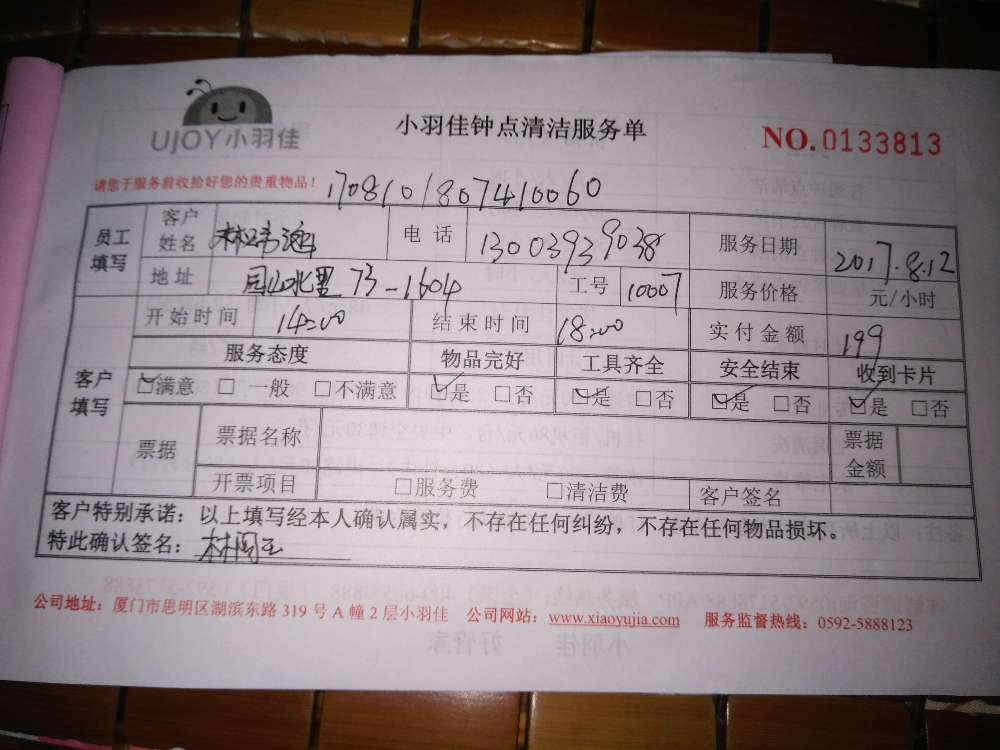 UJOY小羽佳
小羽佳钟点清洁服务单
NO.0133813
请您于服务前收拾好您的贵重物品!
1708101807410060
员工填写 客户姓名 电话 13003939038 服务日期 2017.8.12
地址 73-1604 工号 10007 服务价格 元/小时
客户填写 开始时间 14:00 结束时间 18:00 实付金额 199
服务态度 物品完好 工具齐全 安全结束 收到卡片
☑满意 □一般 □不满意 ☑是 □否 ☑是 □否 ☑是 □否 ☑是 □否
票据 票据名称 票据金额
开票项目 □服务费 □清洁费 客户签名
客户特别承诺:以上填写经本人确认属实,不存在任何纠纷,不存在任何物品损坏。
特此确认签名:
公司地址:厦门市思明区湖滨东路 319 号 A 幢 2 层小羽佳 公司网站:www.xiaoyujia.com 服务监督热线:0592-5888123